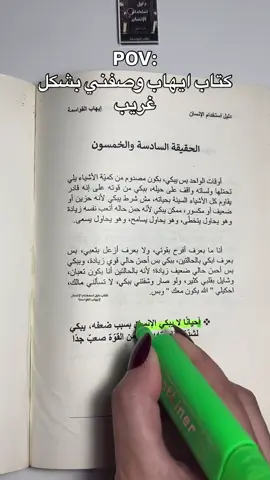 دليل
استخدام
الإنسان
POV:
كتاب ايهاب وصفني بشكل
غريب
دليل استخدام الإنسان
إيهاب القواسمة
الحقيقة السادسة والخمسون
أوقات الواحد بس يبكي، بكون مصدوم من كميّة الأشياء يلي
تحملها ولساته واقف على حيله، يبكي من قوته على إنه قادر
يقاوم كل الأشياء السيئة بحياته، مش شرط يبكي لأنه حزين أو
ضعيف أو مكسور، ممكن يبكي لأنه حسّ حاله أتعب نفسه زيادة
وهو يحاول يتخطى، وهو يحاول يسامح، وهو يحاول يسعى.
أنا ما بعرف أفرح بقوتي، ولا بعرف أزعل بتعبي، بس
بعرف ابكي بالحالتين، ببكي بس أحس حالي قوي زيادة، وببكي
بس أحس حالي ضعيف زيادة؛ لأنه بالحالتين أنا بكون تعبان،
وشايل بقلبي كثير، ولو صار وشفتني ببكي، لا تسألني مالك،
احكيلي " الله يكون معك " وبس.
أحيانًا لا يبكي الإنسان بسبب ضعفه، يبكي
من القوّة صعبٌ جدًا